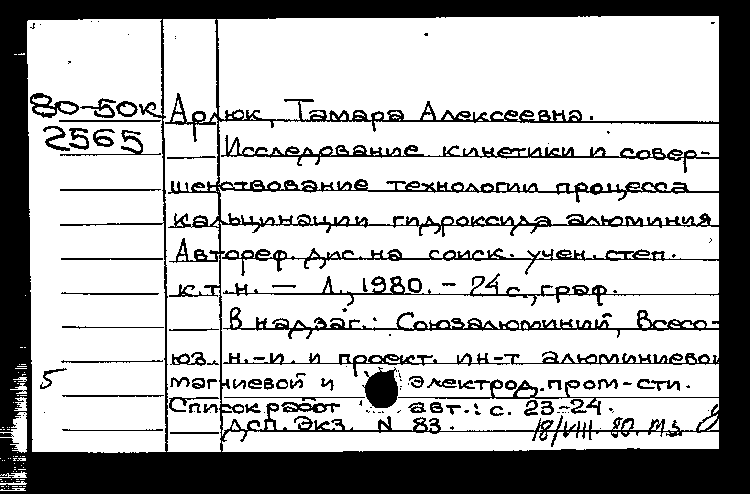 80-50к Арлюк, Тамара Алексеевна.
2565
Исследование кинетики и совер-
шенствование технологии процесса
кальцинации гидроксида алюминия
Автореф. дис. на соиск. учен. степ.
к.т.н. — Л., 1980. - 24 с., граф.
В надзаг.: Союзалюминий, Всесо-
юз. н.-и. и проект. ин-т алюминиевой
5 магниевой и электрод. пром-сти.
Список работ авт.: с. 23-24.
ДСП. Экз. N 83. 18/VIII. 80.